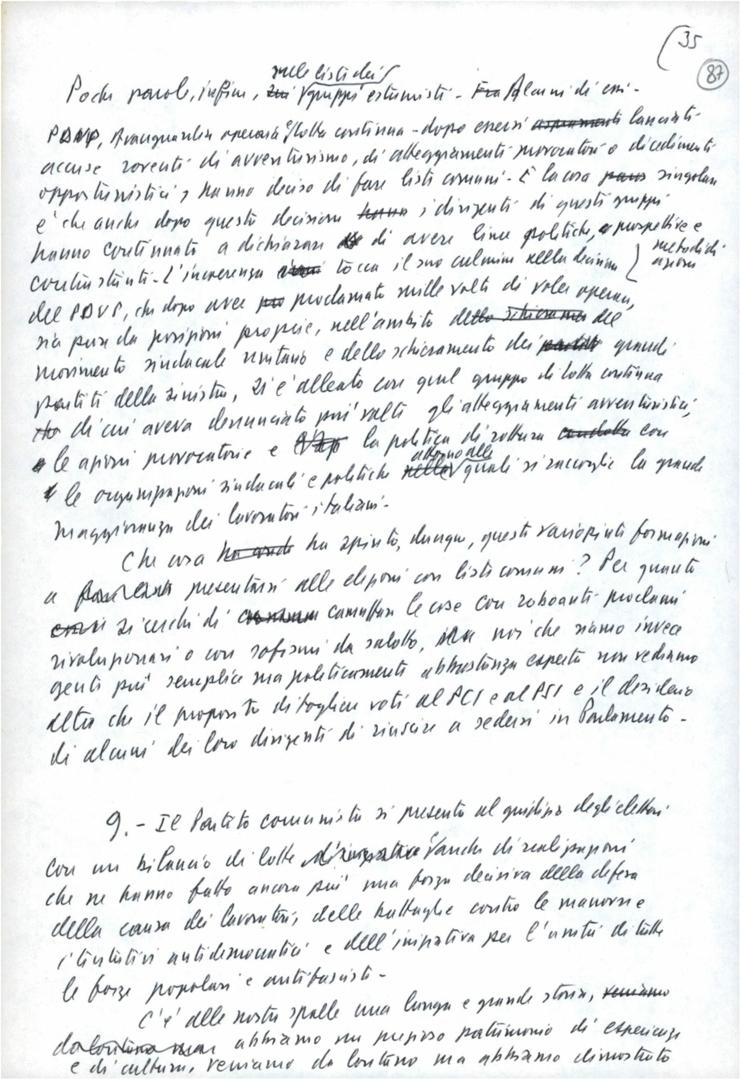 35
87
sulle liste dei
Poche parole, infine, sui gruppi estremisti - Fra Alcuni di essi -
PDUP, Avanguardia operaia e lotta continua - dopo essersi aspramente lanciati
accuse roventi di avventurismo, di atteggiamenti provocatori o di cedimenti
opportunistici, hanno deciso di fare liste comuni - E la cosa singolare
è che anche dopo questa decisione hanno i dirigenti di questi gruppi
hanno continuato a dichiarare di avere linee politiche, prospettive e
metodi di azione
contrastanti - L'incoerenza tocca il suo culmine nella decisione
del PDUP, che dopo aver proclamato mille volte di voler operare,
sia pure da posizioni proprie, nell'ambito dello schieramento del
movimento sindacale unitario e dello schieramento dei partiti grandi
partiti della sinistra, si è alleato con quel gruppo di lotta continua
di cui aveva denunciato più volte gli atteggiamenti avventuristici,
le azioni provocatorie e la politica di rottura condotta con
attorno alle
le organizzazioni sindacali e politiche nelle quali si raccoglie la grande
maggioranza dei lavoratori italiani -
Che cosa ha anche ha spinto, dunque, queste variopinte formazioni
a presentarsi alle elezioni con liste comuni? Per quanto
si cerchi di camuffare le cose con roboanti proclami
rivoluzionari o con sofismi da salotto, noi che siamo invece
gente più semplice ma politicamente abbastanza esperta non vediamo
altro che il proposito di togliere voti al PCI e al PSI e il desiderio
di alcuni dei loro dirigenti di riuscire a sedersi in Parlamento -
9. - Il Partito comunista si presenta al giudizio degli elettori
con un bilancio di lotte anche di realizzazioni
che ne hanno fatto ancora più una forza decisiva della difesa
della causa dei lavoratori, delle battaglie contro le manovre e
i tentativi antidemocratici e dell'iniziativa per l'unità di tutte
le forze popolari e antifasciste -
C'è alle nostre spalle una lunga e grande storia, veniamo
da lontano abbiamo un prezioso patrimonio di esperienze
e di cultura, veniamo da lontano ma abbiamo dimostrato